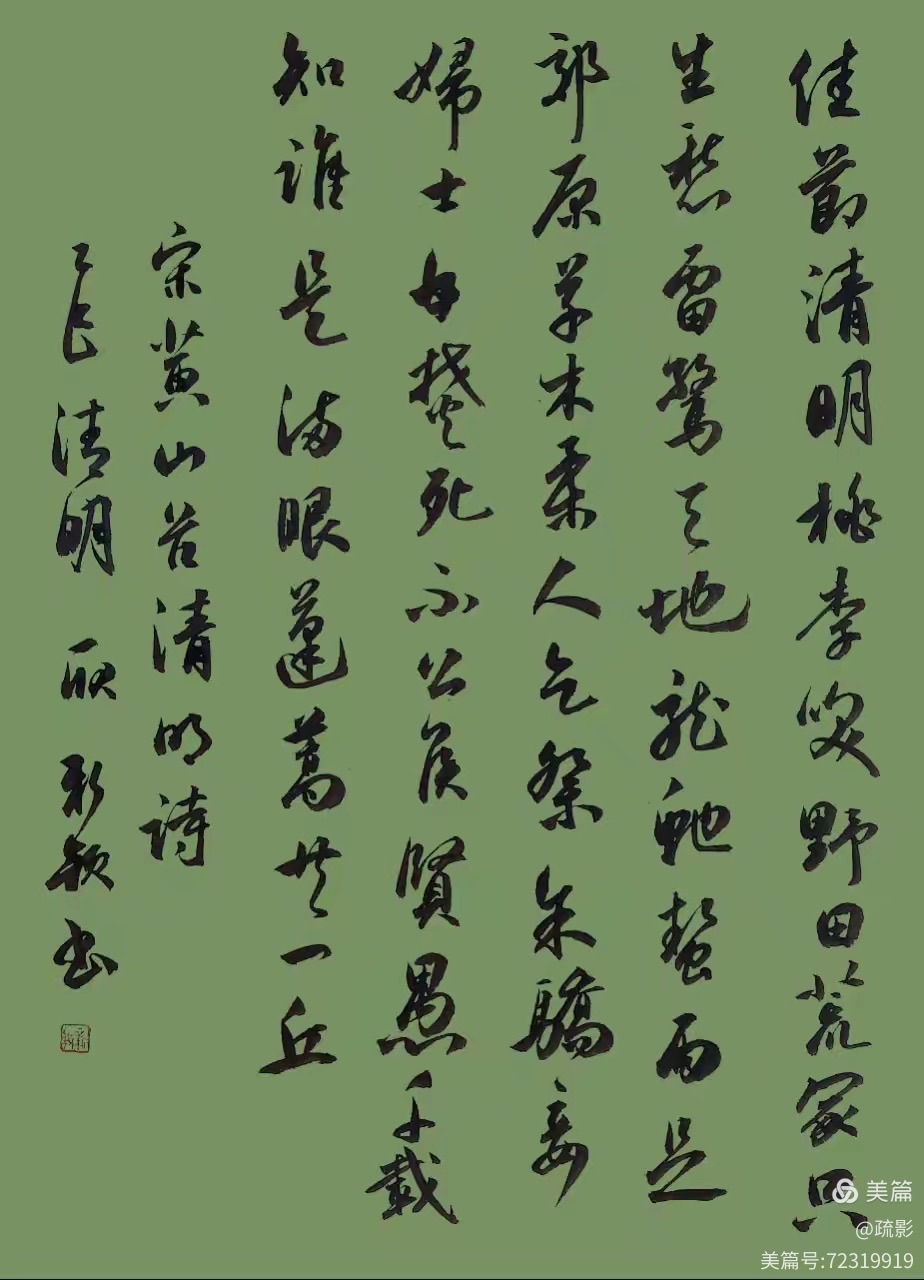 佳節清明桃李咲野田荒冢只
生愁雷驚天地龍虵蟄雨足
郊原草木柔人乞祭余驕妾
婦士甘焚死不公侯賢愚千載
知誰是滿眼蓬蒿共一丘
宋黄山谷清明詩
乙巳清明 耿 书
美篇
@疏影
美篇号:72319919